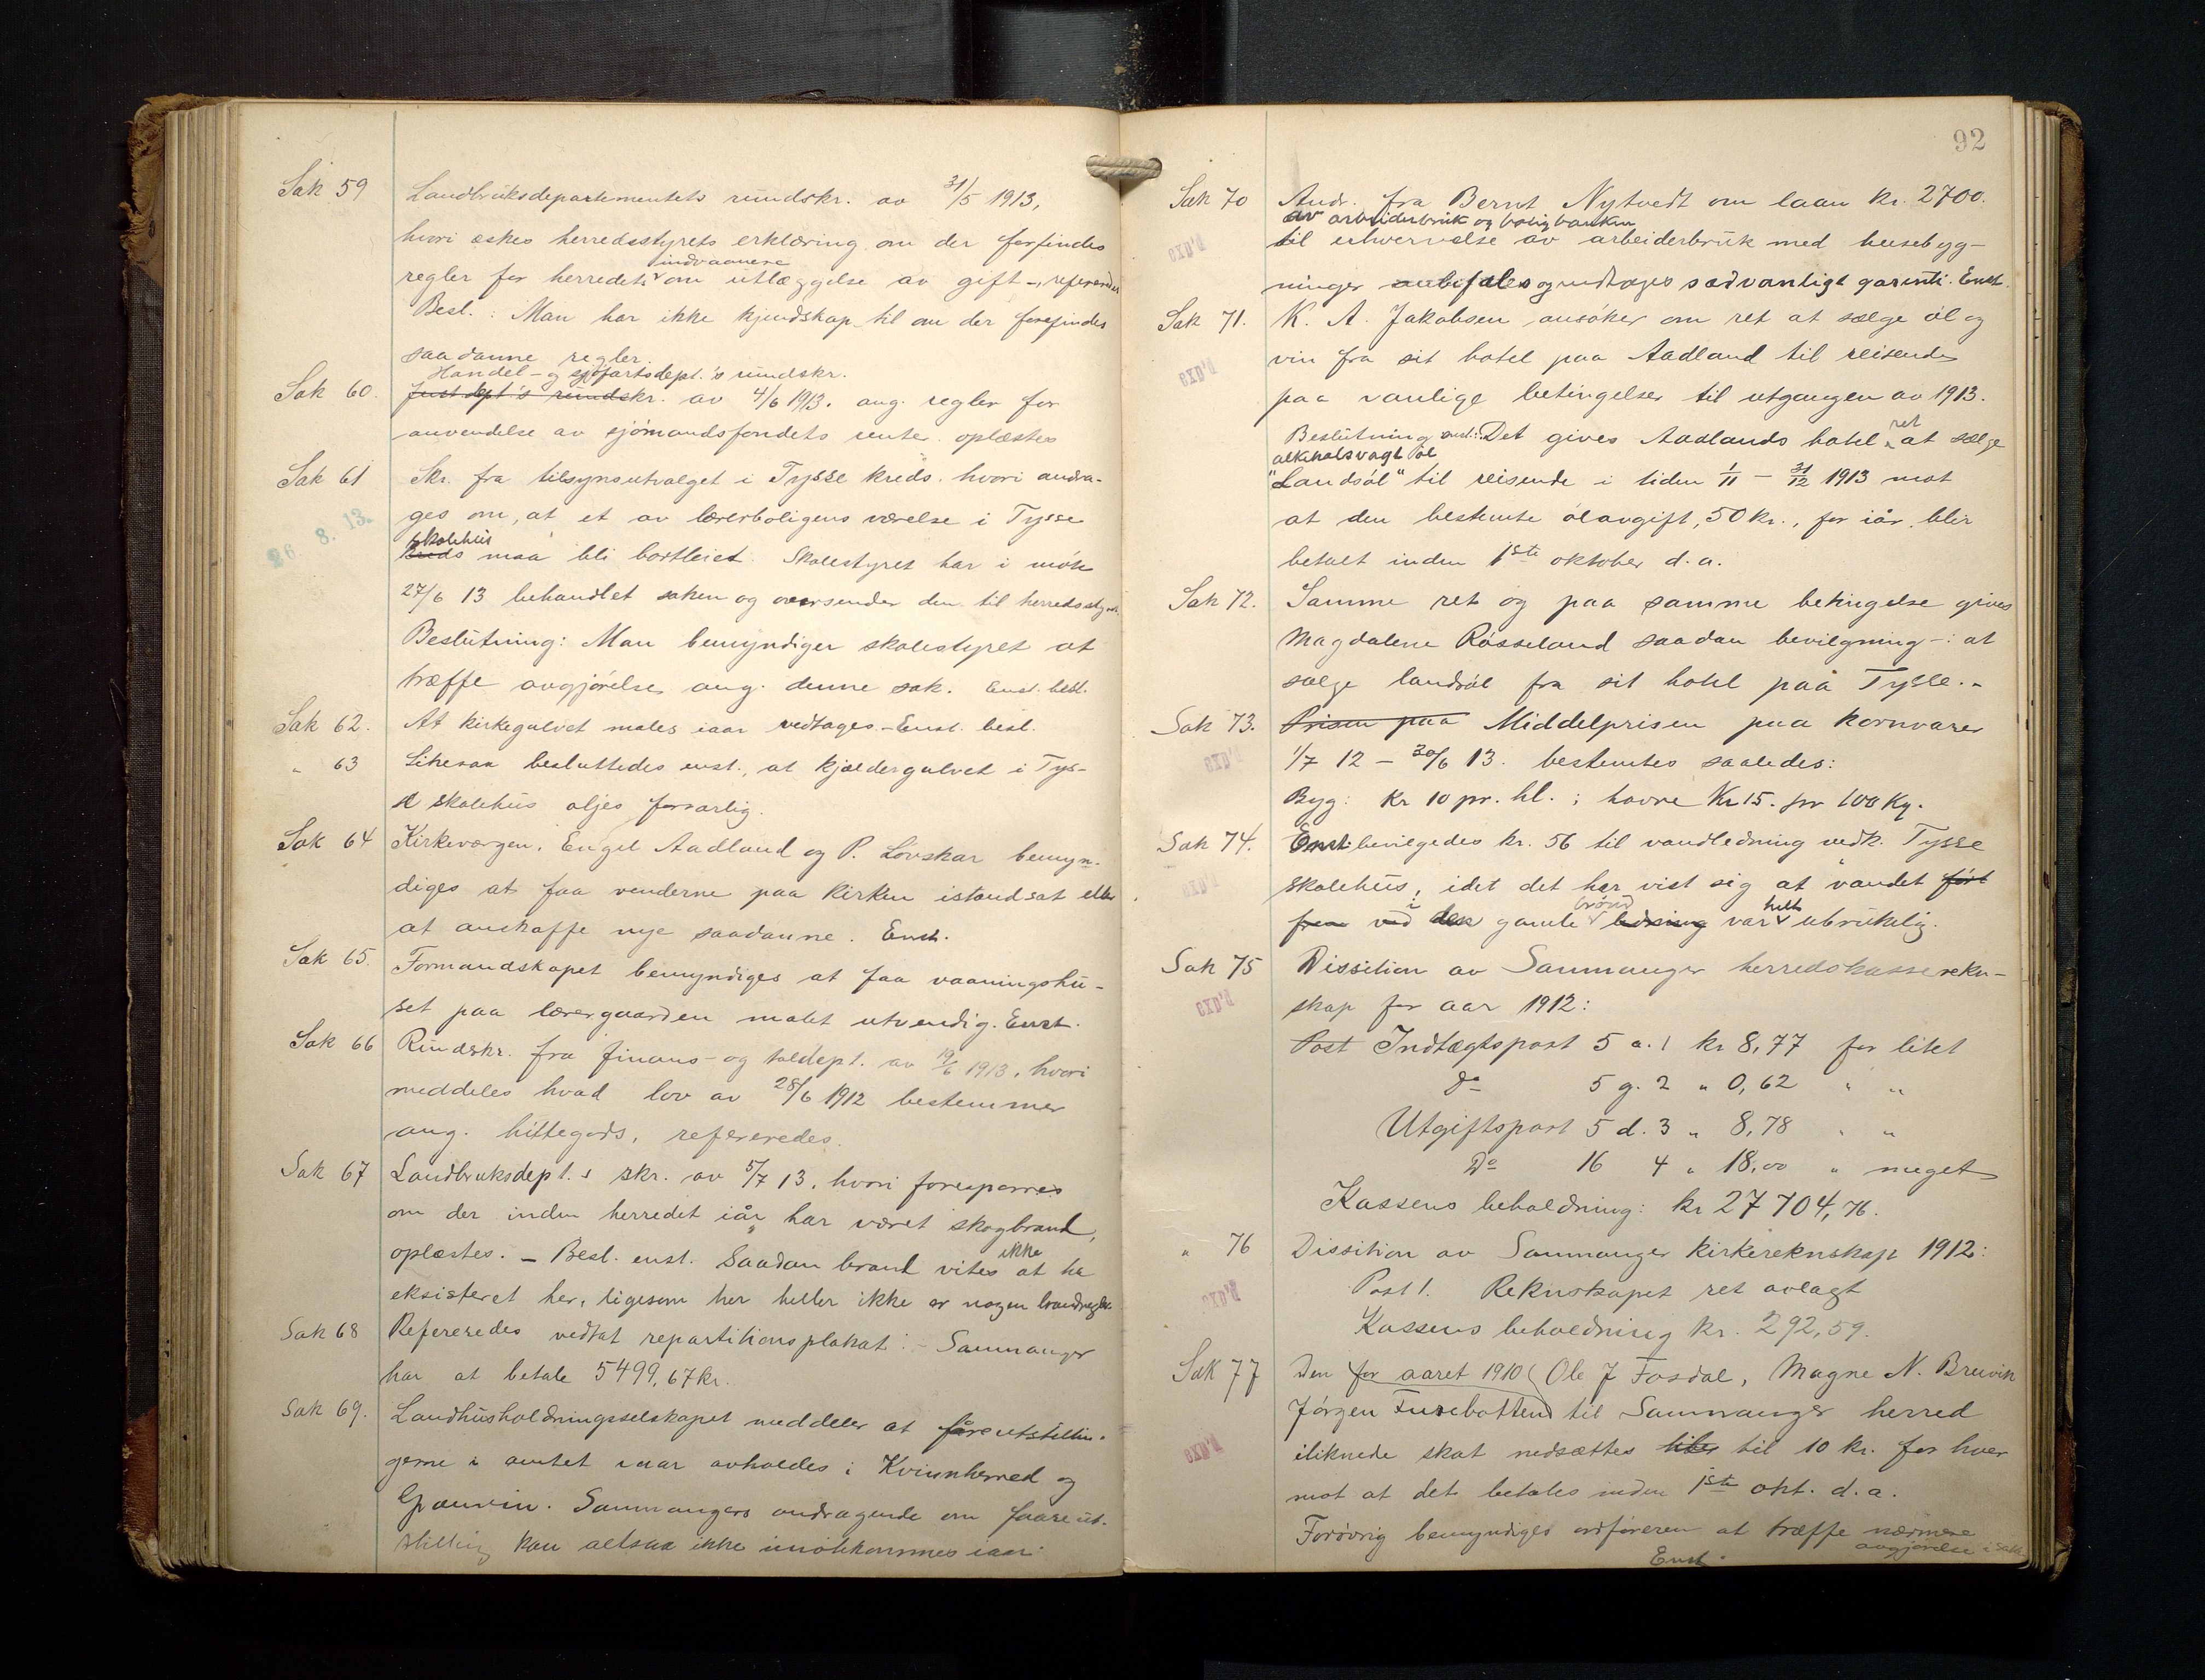 Sak 59 Landbruksdepartementets rundskr. av 31/5 1913,
hvori æskes herredsstyrets erklæring om der forfindes
indvaanere
regler for herredets om utlæggelse av gift -, refereredes
Besl.: Man har ikke kjendskap til om der forefindes
saadanne regler.
Handel- og sjøfartsdept.'s rundskr.
Sak 60. Just.dept's rundskr. av 4/6 1913. ang. regler for
anvendelse av sjömandsfondets renter oplæstes
Sak 61 Skr. fra tilsynsutvalget i Tysse kreds. hvori andra-
ges om, at et av lærerboligens værelse i Tysse
26. 8. 13.
skolehus
kreds maa bli bortleiet. Skolestyret har i möte
27/6 13 behandlet saken og oversender den til herredsstyret.
Beslutning: Man bemyndiger skolestyret at
træffe avgjörelse ang. denne sak. Enst. besl.
Sak 62. At kirkegulvet males iaar vedtages. - Enst. besl.
" 63 Likesaa besluttedes enst., at kjældergulvet i Tys-
se skolehus oljes forsvarlig.
Sak 64 Kirkevergen, Engel Aadland og P. Lövskar bemyn-
diges at faa venderne paa kirken istandsat eller
at anskaffe nye saadanne. Enst.
Sak 65. Formandskapet bemyndiges at faa vaaningshu-
set paa lærergaarden malet utvendig. Enst.
Sak 66 Rundskr. fra finans- og toldept. av 19/6 1913, hvori
meddeles hvad lov av 28/6 1912 bestemmer
ang. hittegods, refereredes.
Sak 67 Landbruksdept.s skr. av 5/7 13. hvori forespørres
om der inden herredet iår har været skogbrand,
oplæstes. - Besl. enst. Saadan brand vites ikke at ha
eksisteret her, ligesom her heller ikke er nogen brandregler
Sak 68 Refereredes vedtat repartitionsplakat: - Samnanger
har at betale 5499,67 kr.
Sak 69. Landhusholdningsselskapet meddeler at fåreutstillin-
gerne i amtet iaar avholdes i Kvinnherred og
Granvin. Samnangers andragende om faareut-
stilling kan altsaa ikke imötekommes iaar.
92
Sak 70 Andr. fra Bernt Nytvedt om laan kr. 2700.
av arbeiderbruk og boligbanken
til erhvervelse av arbeiderbruk med husebyg-
exp'd
ninger anbefales og mottages sædvanligt garanti. Enst.
Sak 71. K. A. Jakobsen ansöker om ret at sælge öl og
vin fra sit hotel paa Aadland til reisende
exp'd
paa vanlige betingelser til utgangen av 1913.
Beslutning enst.: Det gives Aadlands hotel ret at sælge
alkoholsvagt öl
"Landsöl" til reisende i tiden 1/11 - 31/12 1913 mot
at den bestemte ölavgift, 50 kr., for iår, blir
betalt inden 1ste oktober d.a.
Sak 72. Samme ret og paa samme betingelse gives
Magdalene Rösseland saadan bevilgning -: at
sælge landsöl fra sit hotel paa Tysse. -
Sak 73. Prisen paa Middelprisen paa kornvarer
exp'd
1/7 12 - 30/6 13. bestemtes saaledes:
Byg: kr 10 pr. hl.; havre Kr 15. pr 100 Kg.
Sak 74. Enst. bevilgedes kr. 56 til vandledning vedk. Tysse
exp'd
skolehus, idet det har vist sig at vandet fört
frem ved i den gamle brönd ledning var helt ubrukelig.
Sak 75 Dissition av Samnanger herredskasserekn-
exp'd
skap for aar 1912:
Post Indtægtspost 5 a. 1 kr 8,77 for litet
Do 5 g. 2 " 0,62 " "
Utgiftspost 5 d. 3 " 8,78 " "
Do 16 4 " 18,00 " meget
Kassens beholdning: kr 27704,76.
" 76 Dissition av Samnanger kirkereknskap 1912:
exp'd
Post 1. Reknskapet ret avlagt
Kassens beholdning kr. 292,59.
Sak 77 Den for aaret 1910 (Ole J Fosdal, Magne N. Bruvik
Jörgen Furebotten) til Samnanger herred
exp'd
iliknede skat nedsættes til 10 kr. for hver
mot at det betales inden 1ste okt. d.a.
Forövrig bemyndiges ordföreren at træffe nærmere
avgjörelse i saken
Enst.